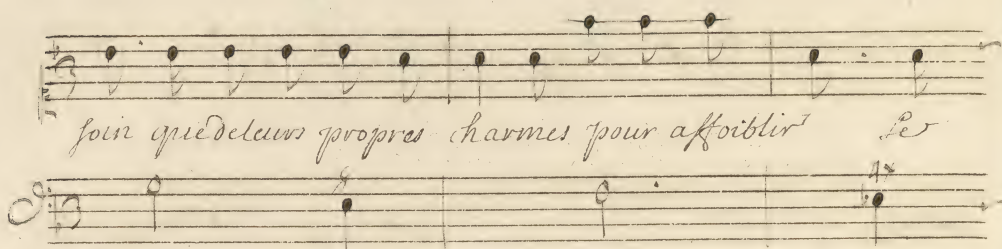 soin que de leurs propres charmes pour affoiblir Le
4x